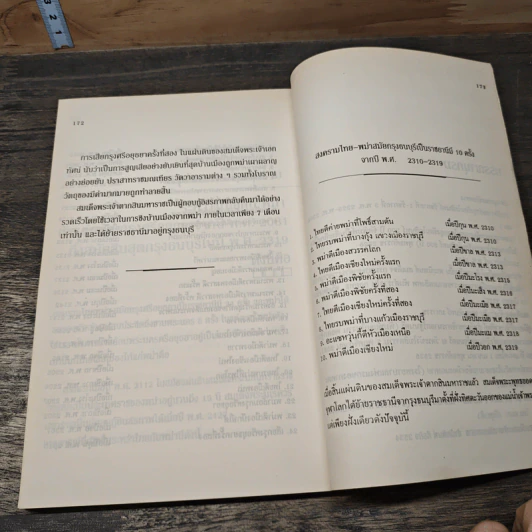 172
การเสียกรุงศรีอยุธยาครั้งที่สอง ในแผ่นดินของสมเด็จพระเจ้าเอก
ทัศน์ นับว่าเป็นการสูญเสียอย่างยับเยินที่สุดบ้านเมืองถูกพม่าเผาผลาญ
อย่างย่อยยับ ปราสาทราชมณเฑียร วัดวาอารามต่าง ๆ รวมทั้งโบราณ
วัตถุของมีค่ามากมายถูกทำลายสิ้น
สมเด็จพระเจ้าตากสินมหาราชเป็นผู้กอบกู้อิสรภาพกลับคืนมาได้อย่าง
รวดเร็วโดยใช้เวลาในการชิงบ้านเมืองจากพม่า ภายในเวลาเพียง 7 เดือน
เท่านั้น และได้ย้ายราชธานีมาอยู่กรุงธนบุรี
173
สงครามไทย-พม่าสมัยกรุงธนบุรีเป็นราชธานีมี 10 ครั้ง
จากปี พ.ศ. 2310-2319
1. ไทยตีค่ายพม่าที่โพธิ์สามต้น เมื่อปีกุน พ.ศ. 2310
2. ไทยรบพม่าที่บางกุ้ง แขวงเมืองราชบุรี เมื่อปีกุน พ.ศ. 2310
3. พม่าตีเมืองสวรรคโลก เมื่อปีขาล พ.ศ. 2313
4. ไทยตีเมืองเชียงใหม่ครั้งแรก เมื่อปีขาล พ.ศ. 2313
5. พม่าตีเมืองพิชัยครั้งแรก เมื่อปีมะโรง พ.ศ. 2315
6. พม่าตีเมืองพิชัยครั้งที่สอง เมื่อปีมะเส็ง พ.ศ. 2316
7. ไทยตีเมืองเชียงใหม่ครั้งที่สอง เมื่อปีมะเมีย พ.ศ. 2317
8. ไทยรบพม่าที่บางแก้วเมืองราชบุรี เมื่อปีมะเมีย พ.ศ. 2317
9. อะแซหวุ่นกี้ตีหัวเมืองเหนือ เมื่อปีมะแม พ.ศ. 2318
10. พม่าตีเมืองเชียงใหม่ เมื่อปีวอก พ.ศ. 2319
เมื่อสิ้นแผ่นดินของสมเด็จพระเจ้าตากสินมหาราชแล้ว สมเด็จพระพุทธยอด
จุฬาโลกได้ย้ายราชธานีจากกรุงธนบุรีมาตั้งที่ฝั่งทิศตะวันออกของแม่น้ำเจ้าพระ
แต่เพียงฝั่งเดียวดังปัจจุบันนี้